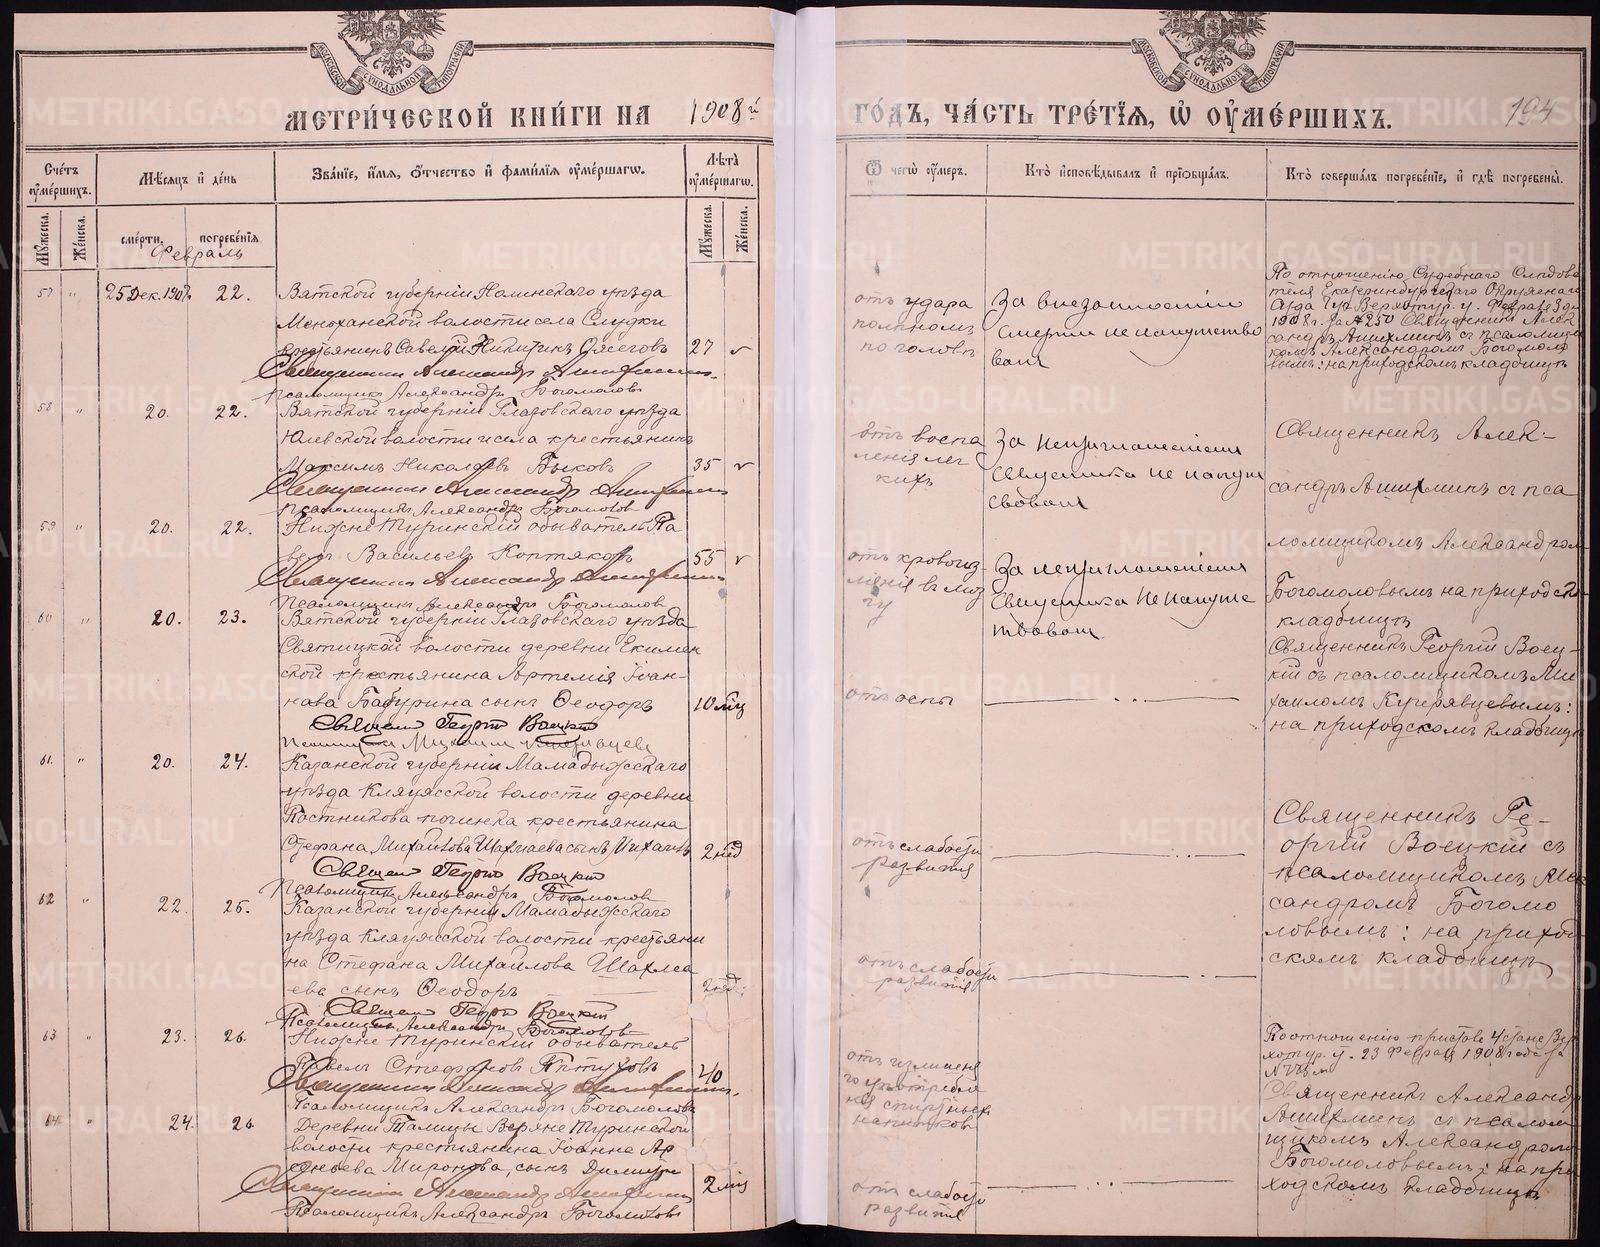 МОСКОВСКОЙ СУНОДАЛЬНОЙ ТИПОГРАФІИ
МОСКОВСКОЙ СУНОДАЛЬНОЙ ТИПОГРАФІИ
МЕТРИ́ЧЕСКОЙ КНИ́ГИ НА 1908 й
ГО́ДЪ, ЧА́СТЬ ТРЕ́ТІЯ, Ѿ ОУМЕ́РШИХЪ. 194
Сче́тъ оуме́ршихъ.
Мѣ́сяцъ и де́нь
Зва́ніе, и́мя, о́тчество и фами́лія оуме́ршагѡ.
Лѣ́та оуме́ршагѡ.
Ѿ чегѡ̀ оу́меръ.
Кто̀ исповѣ́дывалъ и пріѡбща́лъ.
Кто̀ соверша́лъ погребе́ніе, и гдѣ̀ погребены̀.
Му́жеска.
Же́нска.
сме́рти.
погребе́нія
Му́жеска.
Же́нска.
Февраль
57 " 25 Дек. 1907. 22.
Вятской губерніи Нолинскаго уѣзда
волости села Слудки
крестьянинъ Савелій Никитинъ 27
Священникъ Александръ
Псаломщикъ Александръ Богомоловъ
отъ удара
по головѣ
За внезапностію
смерти не напутство
ванъ
По отношенію Судебнаго Слѣдова
теля Екатеринбургскаго Окружнаго
Суда
1908 г. за № 250 Священникъ Алек
сандръ Ашихминъ съ псаломщи
комъ Александромъ Богомоло
вымъ: на приходскомъ кладбищѣ
58 " 20. 22.
Вятской губерніи Глазовскаго уѣзда
волости и села крестьянинъ
Максимъ Николаевъ Быковъ 35
Священникъ Александръ
Псаломщикъ Александръ Богомоловъ
Отъ воспа
ленія лег
кихъ
За неприглашеніемъ
священника не напут
ствованъ
Священникъ Алек-
сандръ Ашихминъ съ пса
ломщикомъ Александром
Богомоловымъ на приходско
кладбищѣ
59 " 20. 22.
Нижне Туринскій обыватель Па
велъ Васильевъ Коптяковъ 55
Священникъ Александръ
Псаломщикъ Александръ Богомоловъ
отъ кровоиз
ліянія въ моз
гу
За неприглашеніемъ
священника не напутс
твованъ
60 " 20. 23.
Вятской губерніи Глазовскаго уѣзда
Святицкой волости деревни Екимен
ской крестьянина Артемія Іоан-
нова Бабурина сынъ Ѳеодоръ 10 мѣс
Священ Георгій Воецкій
Псаломщикъ Михаилъ Кудрявцевъ
отъ оспы
Священникъ Георгій Воец-
кій съ псаломщикомъ Ми
хаиломъ Кудрявцевымъ:
на приходскомъ кладбищѣ
61. " 20. 24.
Казанской губерніи Мамадышскаго
уѣзда Кляушской волости деревни
Постникова починка крестьянина
Стефана Михайлова Шахмаева сынъ Михаилъ 2 нед
Священ Георгій Воецкій
Псаломщикъ Александръ Богомоловъ
отъ слабости
развитія
Священникъ Ге-
оргій Воецкій съ
псаломщикомъ Алек
сандромъ Богомо
ловымъ: на приход
скомъ кладбищѣ
62 " 22. 25.
Казанской губерніи Мамадышскаго
уѣзда Кляушской волости крестьяни
на Стефана Михайлова Шахма
ева сынъ Ѳеодоръ 2 нед.
Священ Георгій Воецкій
Псаломщикъ Александръ Богомоловъ
отъ слабости
развитія
63 " 23. 26.
Нижне Туринскій обыватель
Павелъ Стефановъ Пѣтуховъ 40
Священникъ Александръ
Псаломщикъ Александръ Богомоловъ
отъ излишня
го употребле
нія спиртныхъ
напитковъ
По отношенію пристава 4 стана Вер
хотур. у. 23 Февраля 1908 года за
Священникъ Александр
Ашихминъ съ псалом
щикомъ Александромъ
Богомоловымъ: на при
ходскомъ кладбищѣ
64 " 24. 26
Деревни Талицы Верхне Туринской
волости крестьянина Іоанна Ар
сеньева Миронова, сынъ Димитрі 2 мѣс
Священникъ Александръ
Псаломщикъ Александръ Богомоловъ
отъ слабости
развитія
METRIKI.GASO-URAL.RU